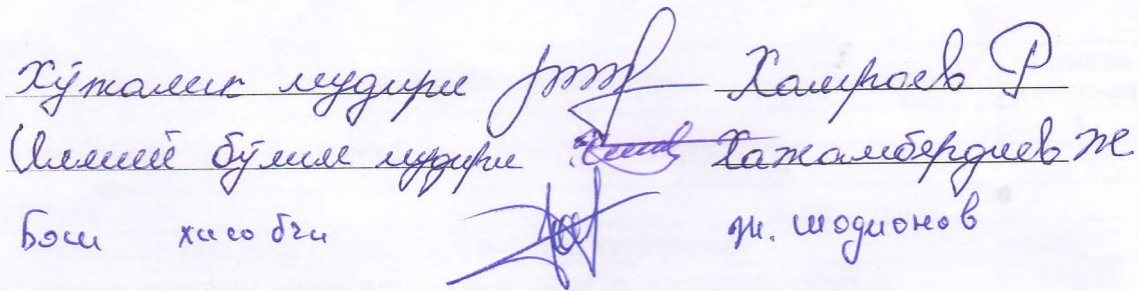 Хўжалик мудири Хамроев Р
Илмий бўлим мудири Хажамбердиев Ж
Бош хисобчи Ж. Шодмонов